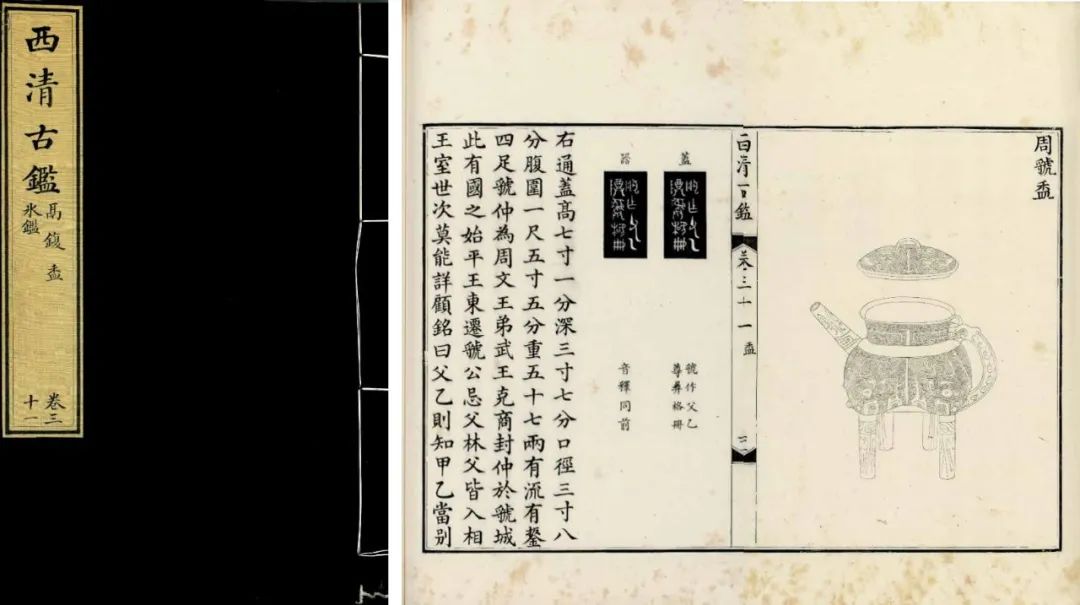 西清古鑑
鬲 鍑 盉
氷鑑
卷三
十一
周虢盉
西清古鑑
卷三十一 盉
蓋
虢作父乙
尊彝格冊
器
音釋同前
右通蓋高七寸一分深三寸七分口徑三寸八
分腹圍一尺五寸五分重五十七兩有流有鋬
四足虢仲為周文王弟武王克商封仲於虢城
此有國之始平王東遷虢公忌父林父皆入相
王室世次莫能詳顧銘曰父乙則知甲乙當別